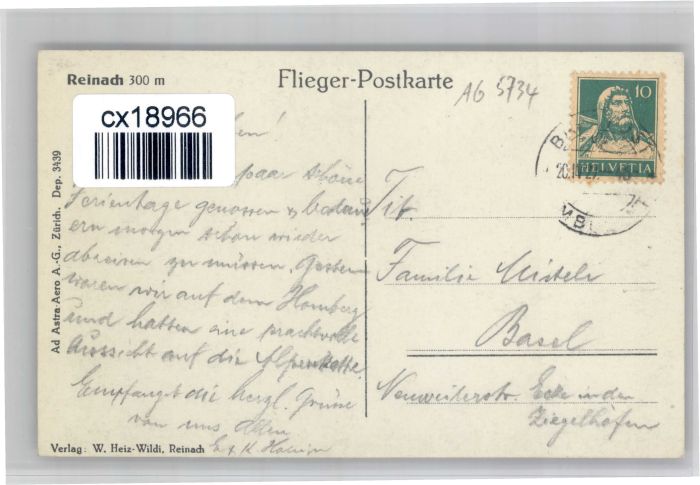 Reinach 300 m
Flieger-Postkarte
AG 5734
10
HELVETIA
cx18966
paar schöne
Ferientage genossen & bedau
ern morgen schon wieder
abreisen zu müssen. Gestern
waren wir auf dem Homberg
und hatten eine prachtvolle
Aussicht auf die Alpenkette.
Empfanget die herzl. Grüsse
von uns allen
E & K
Tit.
Familie
Basel
Neuweilerstr. Ecke in den
Ziegelhöfen
Ad Astra-Aero A.-G., Zürich. Dep. 3439
Verlag: W. Heiz-Wildi, Reinach